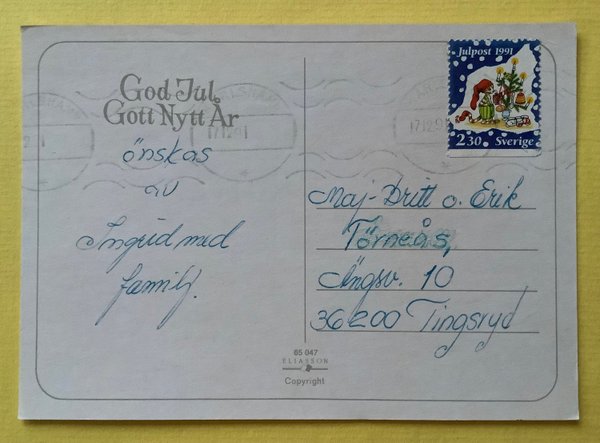 God Jul
Gott Nytt År
önskas
av
Ingrid med
familj.
Julpost 1991
2.30 Sverige
17.12.91
Maj-Britt o. Erik
Törneås,
Ängsv. 10
36200 Tingsryd
65 047
ELIASSON
Copyright